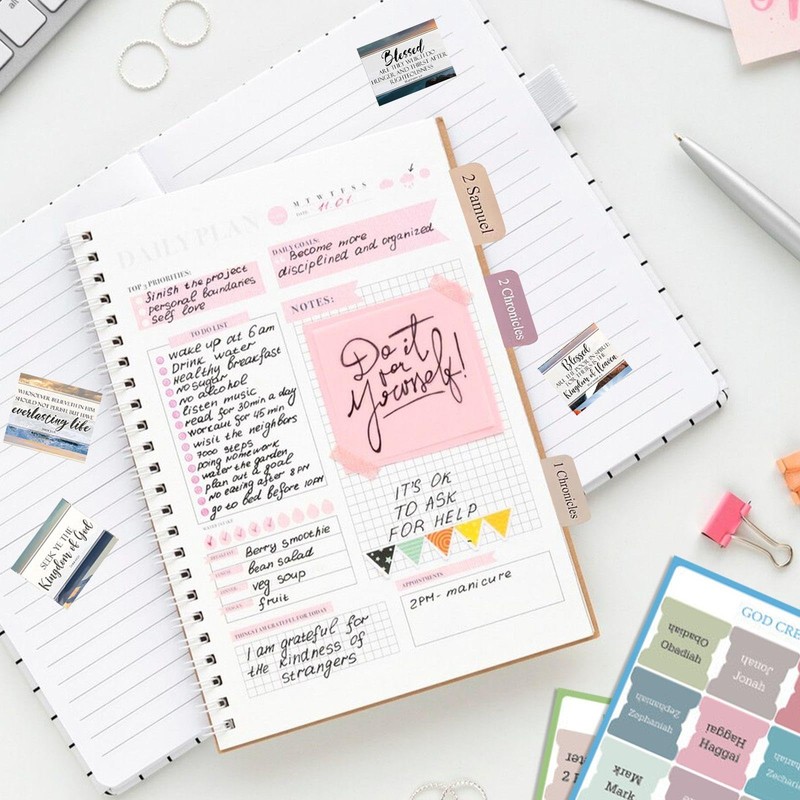 alt
Blessed
ARE THEY WHICH DO
HUNGER AND THIRST AFTER
RIGHTEOUSNESS
2 Samuel
2 Chronicles
1 Chronicles
DAILY PLAN
M T W T F S S
11.01
DAILY GOALS:
Become more
disciplined and organized
TOP 3 PRIORITIES:
Sinish the project
personal boundaries
self love
NOTES:
Do it
for
yourself!
TO DO LIST
wake up at 6 am
Drink water
Healthy breakfast
no sugar
no alcohol
listen music
read for 30min a day
workout for 45 min
wisit the neighbors
7000 steps
doing homework
water the garden
plan out a goal
no eating after 8 PM
go to bed before 10PM
IT'S OK
TO ASK
FOR HELP
Berry smoothie
bean salad
veg soup
fruit
APPOINTMENTS
2PM- manicure
THINGS I AM GRATEFUL FOR TODAY
I am grateful for
the kindness of
strangers
Blessed
ARE THE POOR IN SPIRIT:
FOR THEIRS IS THE
Kingdom of Heaven
WHOSOEVER BELIEVETH IN HIM
SHOULD NOT PERISH, BUT HAVE
everlasting life
SEEK YE THE
Kingdom of God
GOD CRE
Obadiah
Obadiah
Jonah
Jonah
Zephaniah
Zephaniah
Haggai
Haggai
Zechari
Mark
Mark